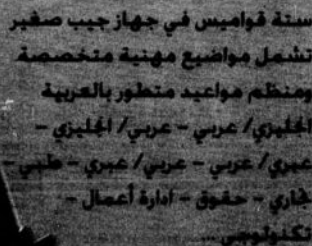 ستة قواميس في جهاز جيب صغير
تشمل مواضيع مهنية متخصصة
ومنظم مواعيد متطور بالعربية
انجليزي/ عربي - عربي/ انجليزي -
عبري/ عربي - عربي/ عبري - طبي -
تجاري - حقوق - ادارة أعمال -
تكنولوجي ...